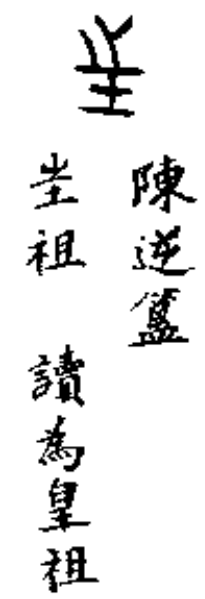 陳逆簠
㞷祖 讀為皇祖